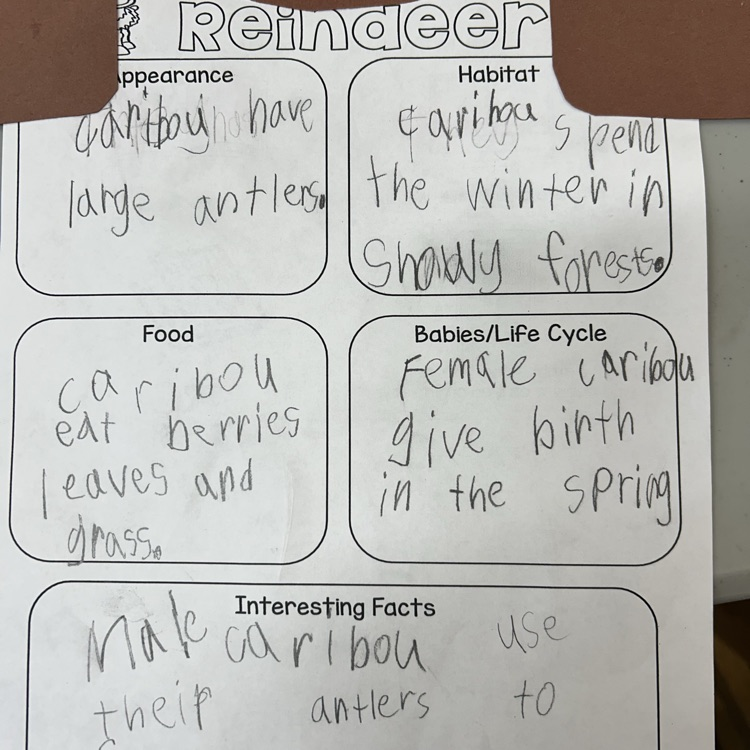 Reindeer
Appearance
caribou have
large antlers.
Habitat
caribou spend
the winter in
shady forests.
Food
caribou
eat berries
leaves and
grass.
Babies/Life Cycle
Female caribou
give birth
in the spring
Interesting Facts
Male caribou use
their antlers to